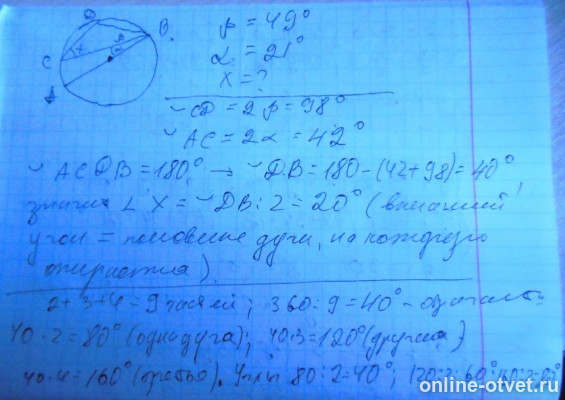 D
B
C
A
x
β
α
β = 49°
α = 21°
x = ?
◡CD = 2β = 98°
◡AC = 2α = 42°
◡ACDB = 180° → ◡DB = 180 - (42 + 98) = 40°,
значит ∠X = ◡DB : 2 = 20° (вписанный
угол = половине дуги, на которую
опирается)
2 + 3 + 4 = 9 частей; 360 : 9 = 40° - одна часть
40 · 2 = 80° (одна дуга); 40 · 3 = 120° (другая)
40 · 4 = 160° (третья). Углы 80 : 2 = 40°; 120 : 2 = 60°; 160 : 2 = 80°
online-otvet.ru